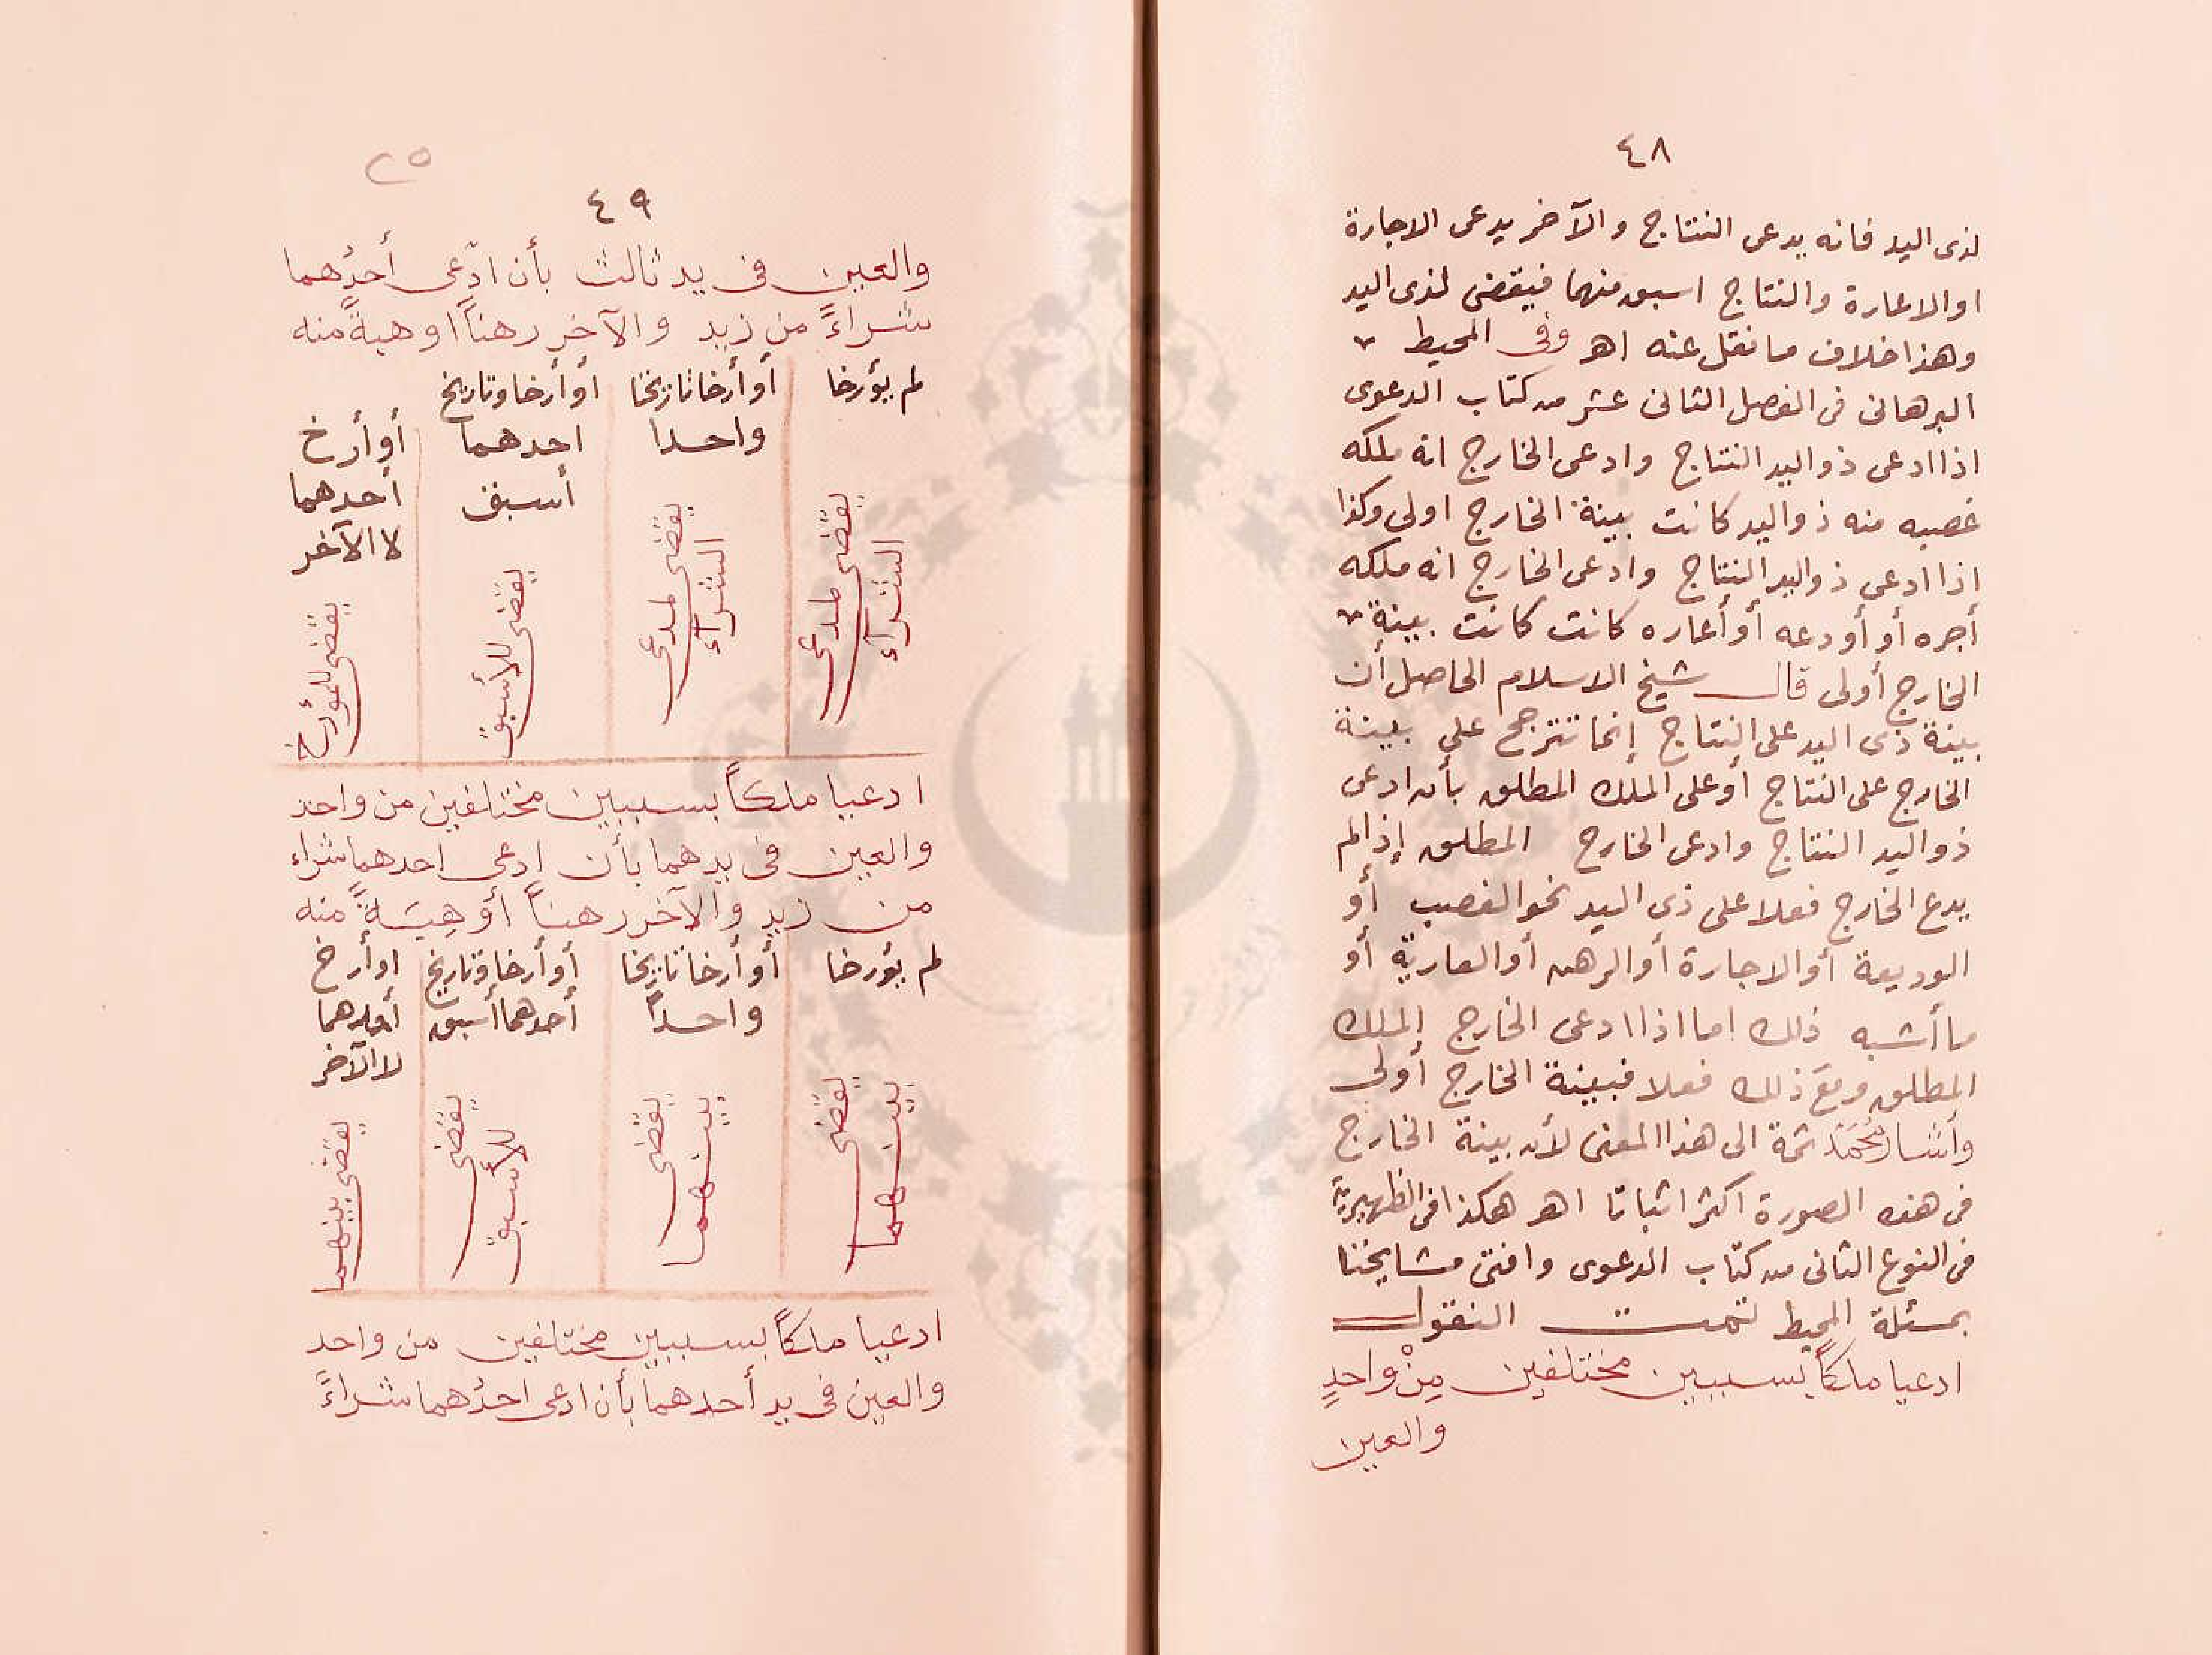 ٤٨
لذى اليد فانه يدعى النتاج والآخر يدعى الاجارة
او الاعارة والنتاج اسبق منهما فيقضى لذى اليد
وهذا خلاف ما نقل عنه اهـ وفى المحيط
البرهانى فى الفصل الثانى عشر من كتاب الدعوى
اذا ادعى ذو اليد النتاج وادعى الخارج انه ملكه
غصبه منه ذو اليد كانت بينة الخارج اولى وكذا
اذا ادعى ذو اليد النتاج وادعى الخارج انه ملكه
أجره أو أودعه أو أعاره كانت كانت بينة
الخارج أولى قال شيخ الاسلام الحاصل أن
بينة ذى اليد على النتاج إنما تترجح على بينة
الخارج على النتاج أو على الملك المطلق بأن ادعى
ذو اليد النتاج وادعى الخارج المطلق إذا لم
يدع الخارج فعلا على ذى اليد نحو الغصب أو
الوديعة أو الاجارة أو الرهن أو العارية أو
ما أشبه ذلك اما اذا ادعى الخارج الملك
المطلق ومع ذلك فعلا فبينة الخارج أولى
وأشار محمد ثمة الى هذا المعنى لأن بينة الخارج
فى هذه الصورة اكثر اثباتا اهـ هكذا فى الظهيرية
فى النوع الثانى من كتاب الدعوى وافتى مشايخنا
بمسئلة المحيط تمت النقول
ادعيا ملكاً بسببين مختلفين مِنْ واحدٍ
والعين
٢٥
٤٩
والعين فى يد ثالث بأن ادّعى أحدُهما
شراءً من زيد والآخر رهناً او هبةً منه
لم يؤرخا
يقضى لمدعى
الشراء
أو أرخا تاريخا
واحدا
يقضى لمدعى
الشراء
أو أرخا وتاريخ
احدهما
أسبق
يقضى للأسبق
أو أرخ
أحدهما
لا الآخر
يقضى للمؤرخ
ادعيا ملكاً بسببين مختلفين من واحد
والعين فى يدهما بأن ادعى احدهما شراء
من زيد والآخر رهناً أو هِبَةً منه
لم يؤرخا
يقضى
بينهما
أو أرخا تاريخا
واحداً
يقضى
بينهما
أو أرخا وتاريخ
أحدهما أسبق
يقضى
للأسبق
او أرخ
أحدهما
لا الآخر
يقضى بينهما
ادعيا ملكاً بسببين مختلفين من واحد
والعين فى يد أحدهما بأن ادعى احدُهما شراءً